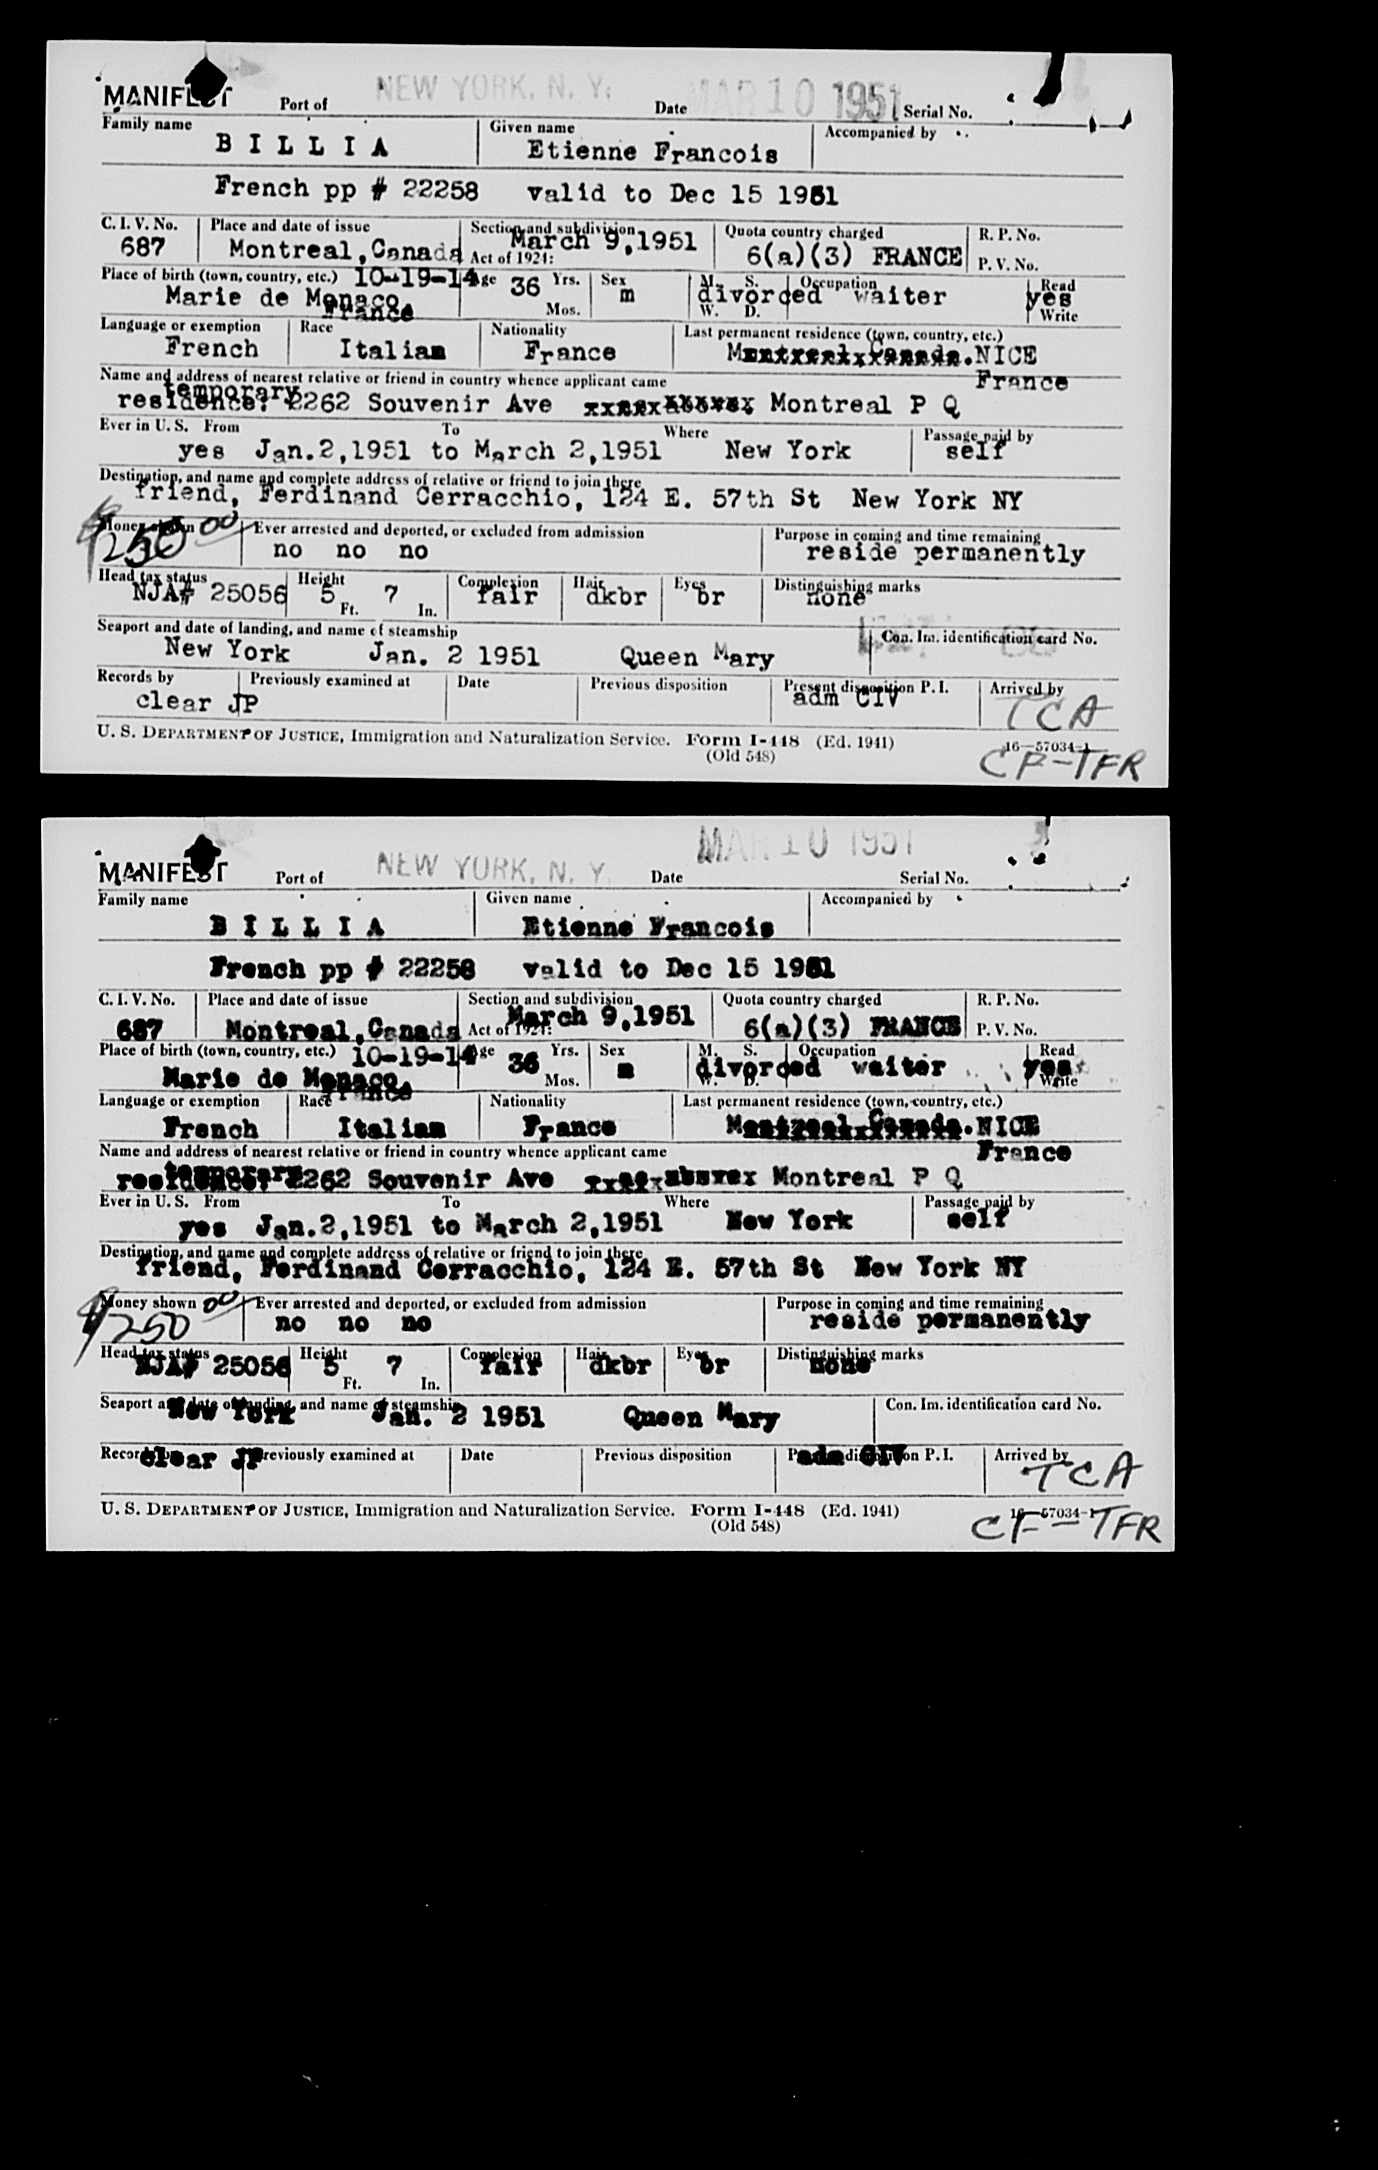 MANIFEST Port of NEW YORK, N. Y. Date MAR 10 1951 Serial No.
Family name Given name Accompanied by
B I L L I A Etienne Francois
French pp # 22258 valid to Dec 15 1951
C. I. V. No. Place and date of issue Section and subdivision Quota country charged R. P. No.
687 Montreal,Canada Act of 1924: March 9,1951 6(a)(3) FRANCE P. V. No.
Place of birth (town, country, etc.) 10-19-14 Age 36 Yrs. Sex M. S. Occupation Read
Marie de Monaco, Mos. m divorced W. D. waiter yes Write
France
Language or exemption Race Nationality Last permanent residence (town, country, etc.)
French Italian France NICE
Name and address of nearest relative or friend in country whence applicant came France
temporary
residence: 2262 Souvenir Ave Montreal P Q
Ever in U. S. From To Where Passage paid by
yes Jan.2,1951 to March 2,1951 New York self
Destination, and name and complete address of relative or friend to join there
friend, Ferdinand Cerracchio, 124 E. 57th St New York NY
Money shown Ever arrested and deported, or excluded from admission Purpose in coming and time remaining
$250 00 no no no reside permanently
Head tax status Height Complexion Hair Eyes Distinguishing marks
NJA# 25056 5 Ft. 7 In. fair dkbr br none
Seaport and date of landing, and name of steamship Con. Im. identification card No.
New York Jan. 2 1951 Queen Mary
Records by Previously examined at Date Previous disposition Present disposition P. I. Arrived by
clear JP adm CIV TCA
U. S. DEPARTMENT OF JUSTICE, Immigration and Naturalization Service. Form I-448 (Ed. 1941) 16—57034-1
(Old 548) CF-TFR
MANIFEST Port of NEW YORK, N. Y. Date MAR 10 1951 Serial No.
Family name Given name Accompanied by
B I L L I A Etienne Francois
French pp # 22258 valid to Dec 15 1951
C. I. V. No. Place and date of issue Section and subdivision Quota country charged R. P. No.
687 Montreal,Canada Act of 1924: March 9,1951 6(a)(3) FRANCE P. V. No.
Place of birth (town, country, etc.) 10-19-14 Age 36 Yrs. Sex M. S. Occupation Read
Marie de Monaco, Mos. m divorced W. D. waiter yes Write
France
Language or exemption Race Nationality Last permanent residence (town, country, etc.)
French Italian France NICE
Name and address of nearest relative or friend in country whence applicant came France
temporary
residence: 2262 Souvenir Ave Montreal P Q
Ever in U. S. From To Where Passage paid by
yes Jan.2,1951 to March 2,1951 New York self
Destination, and name and complete address of relative or friend to join there
friend, Ferdinand Cerracchio, 124 E. 57th St New York NY
Money shown Ever arrested and deported, or excluded from admission Purpose in coming and time remaining
$250 00 no no no reside permanently
Head tax status Height Complexion Hair Eyes Distinguishing marks
NJA# 25056 5 Ft. 7 In. fair dkbr br none
Seaport and date of landing, and name of steamship Con. Im. identification card No.
New York Jan. 2 1951 Queen Mary
Records by Previously examined at Date Previous disposition Present disposition P. I. Arrived by
clear JP adm CIV TCA
U. S. DEPARTMENT OF JUSTICE, Immigration and Naturalization Service. Form I-448 (Ed. 1941) 16—57034-1
(Old 548) CF-TFR